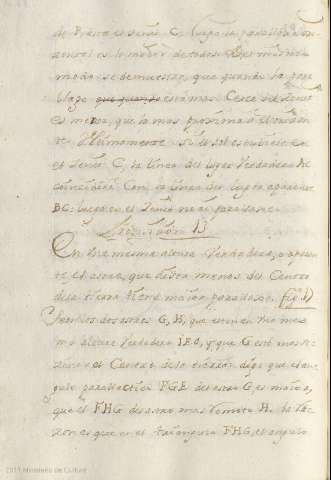 de Vista es seno C. luego la paralaxe ori-
zontal es la mayor de todas. Del mismo
modo se demuestra, que quando la par
alage que quando está mas Cerca del Zenit
es menor, que la mas proxima al Orizon
te. Ultimamente si el sol estubiese en
el Zenit C, la linea del lugar Verdadero AC
coincidirá Con la linea del lugar aparente
BC: luego en el Zenit no ai paralaxe.
Proposicion 13
En una mesma altura Verdadera, o aparen
te el astro, que dista menos del Centro
de la tierra tiene maior paralaxe. fig. 17
Sean los dos astros G, H, que esten en una mes
ma altura Verdadera IEG, y que G esté mas ve
zino al Centro de la tierra: digo que el an
gulo paralactico FGE del astro G, es maior,
que el FHG del astro mas remoto H. La ra-
zon es que en el triangulo FHG, el angulo
2011 Ministerio de Cultura